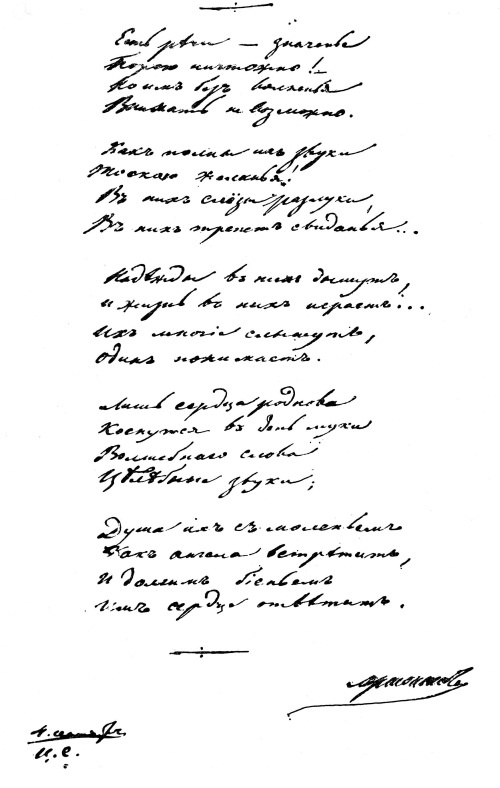 Есть рѣчи — значенье
Порою ничтожно! —
Но имъ безъ волненья
Внимать невозможно.
Какъ полны ихъ звуки
Тоскою желанья!
Въ нихъ слёзы разлуки,
Въ нихъ трепетъ свиданья...
Надежды въ нихъ дышутъ,
И жизнь въ нихъ играетъ...
Ихъ многіе слышутъ,
Одинъ понимаетъ.
Лишь сердца роднова
Коснутся въ день муки
Волшебнаго слова
Цѣлѣбные звуки;
Душа ихъ съ моленьемъ
Какъ ангела встрѣтитъ,
И долгимъ біеньемъ
Имъ сердце отвѣтитъ.
Лермонтовъ
4.
Ц. С.